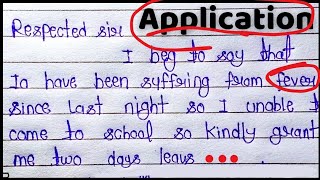 Application
Respected sir
I beg to say that
Ia have been suffering from fever
since last night so I unable t
come to school so kindly grant
me two days leave